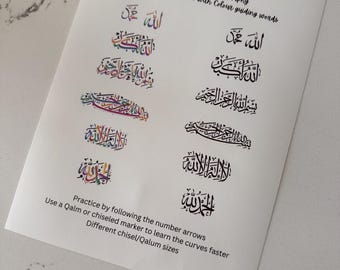 with Colour guiding words
الله محمد
الله محمد
الله أكبر
الله أكبر
بسم الله الرحمن الرحيم
بسم الله الرحمن الرحيم
لا إله إلا الله
لا إله إلا الله
الحمد لله
الحمد لله
Practice by following the number arrows
Use a Qalm or chiseled marker to learn the curves faster
Different chisel/Qalum sizes